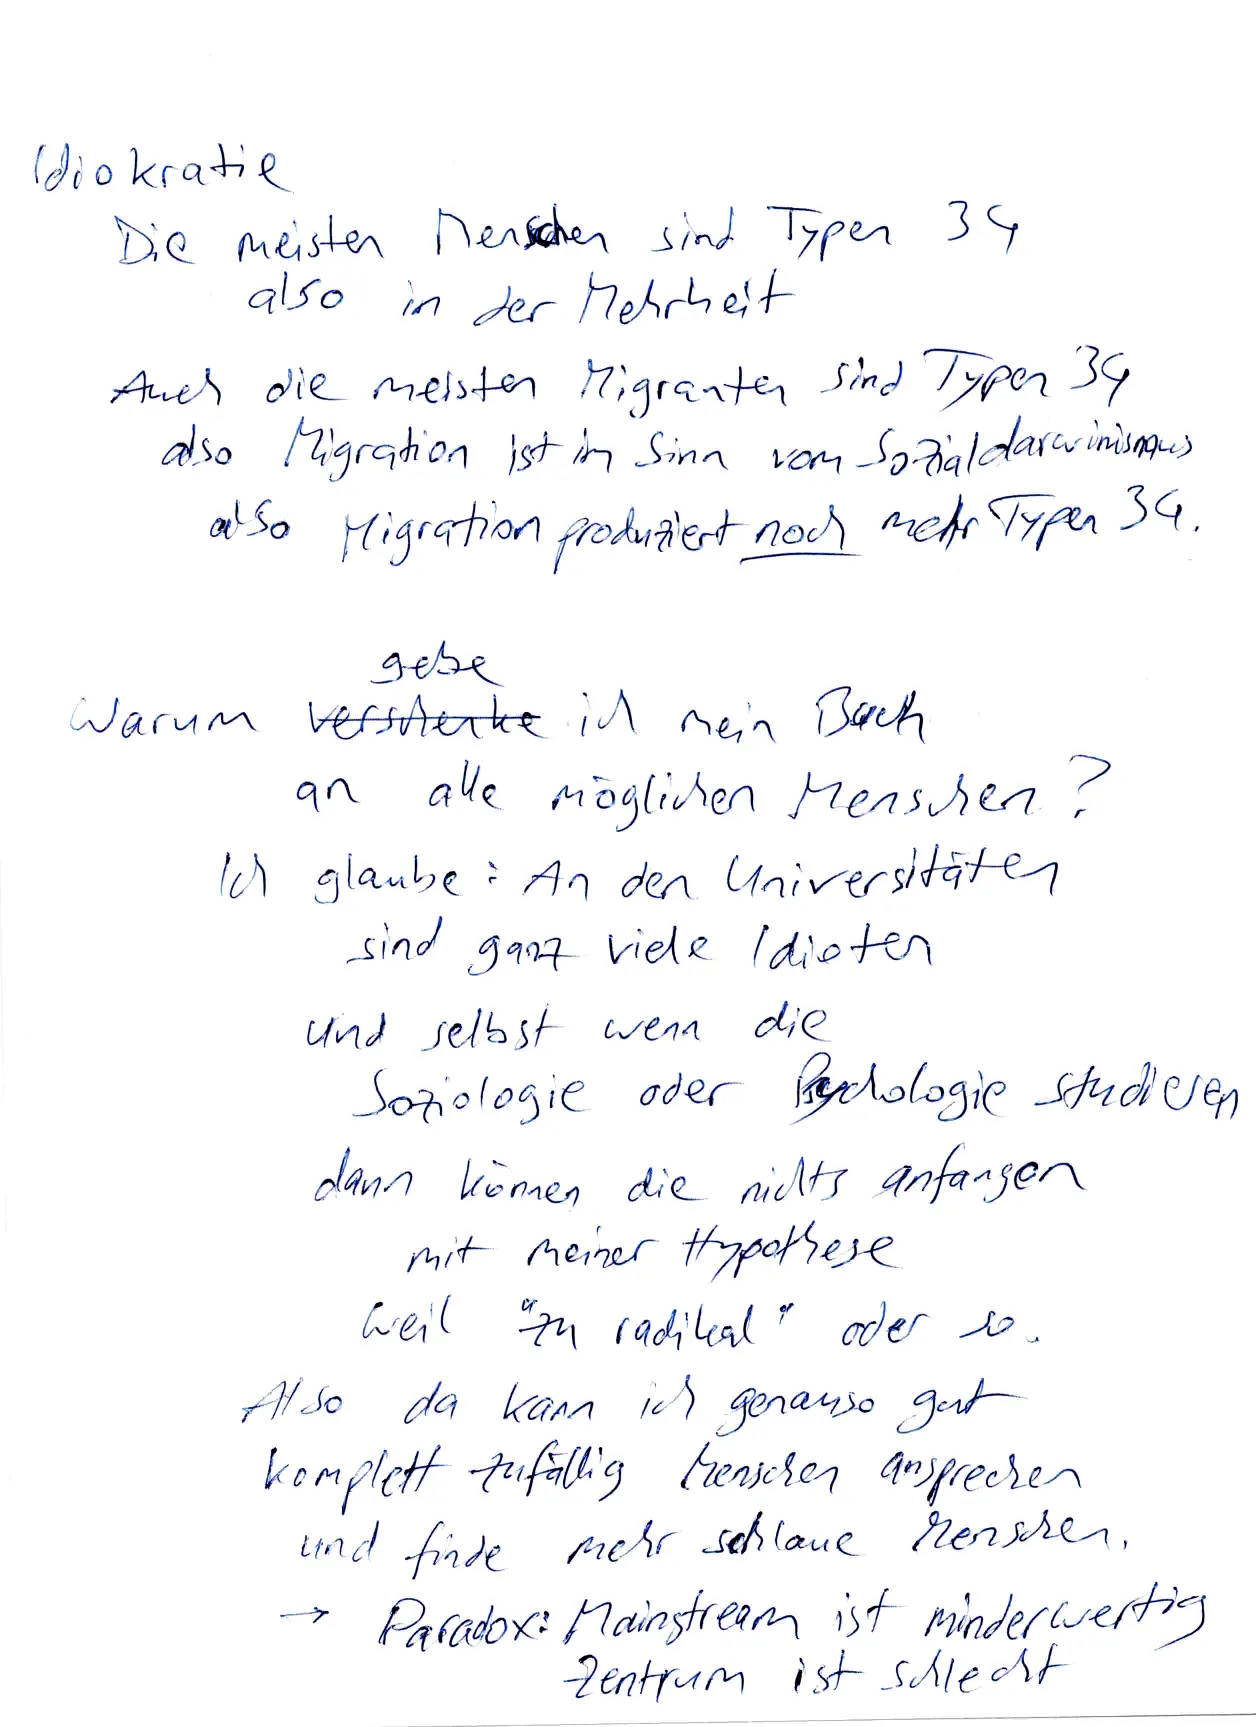 Idiokratie
Die meisten Menschen sind Typen 34
also in der Mehrheit
Auch die meisten Migranten sind Typen 34
also Migration ist im Sinn vom Sozialdarwinismus
also Migration produziert noch mehr Typen 34.
gebe
Warum verschenke ich mein Buch
an alle möglichen Menschen?
Ich glaube: An den Universitäten
sind ganz viele Idioten
und selbst wenn die
Soziologie oder Psychologie studieren
dann können die nichts anfangen
mit meiner Hypothese
weil "zu radikal" oder so.
Also da kann ich genauso gut
komplett zufällig Menschen ansprechen
und finde mehr schlaue Menschen.
→ Paradox: Mainstream ist minderwertig
Zentrum ist schlecht